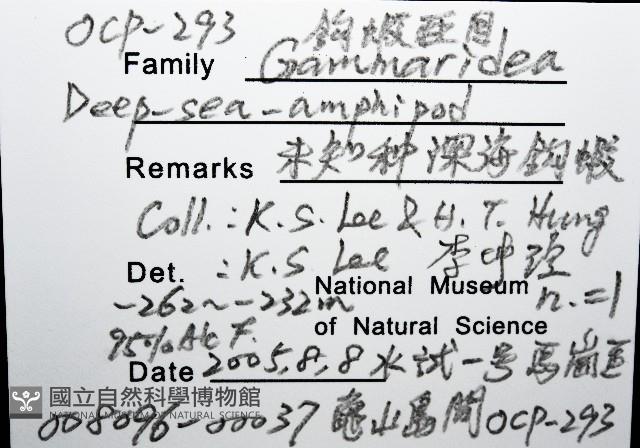 OCP-293 鉤蝦亞目
Family Gammaridea
Deep-sea-amphipod
Remarks 未知种深海鉤蝦
Coll.: K. S. Lee & H. T. Hung
Det. : K. S Lee 李坤瑄
-262~-232m National Museum n.=1
95% Alc F. of Natural Science
Date 2005, 8, 8 水試一号 馬崗至
國立自然科學博物館
NATIONAL MUSEUM OF NATURAL SCIENCE
008096-00037 龜山島間 OCP-293